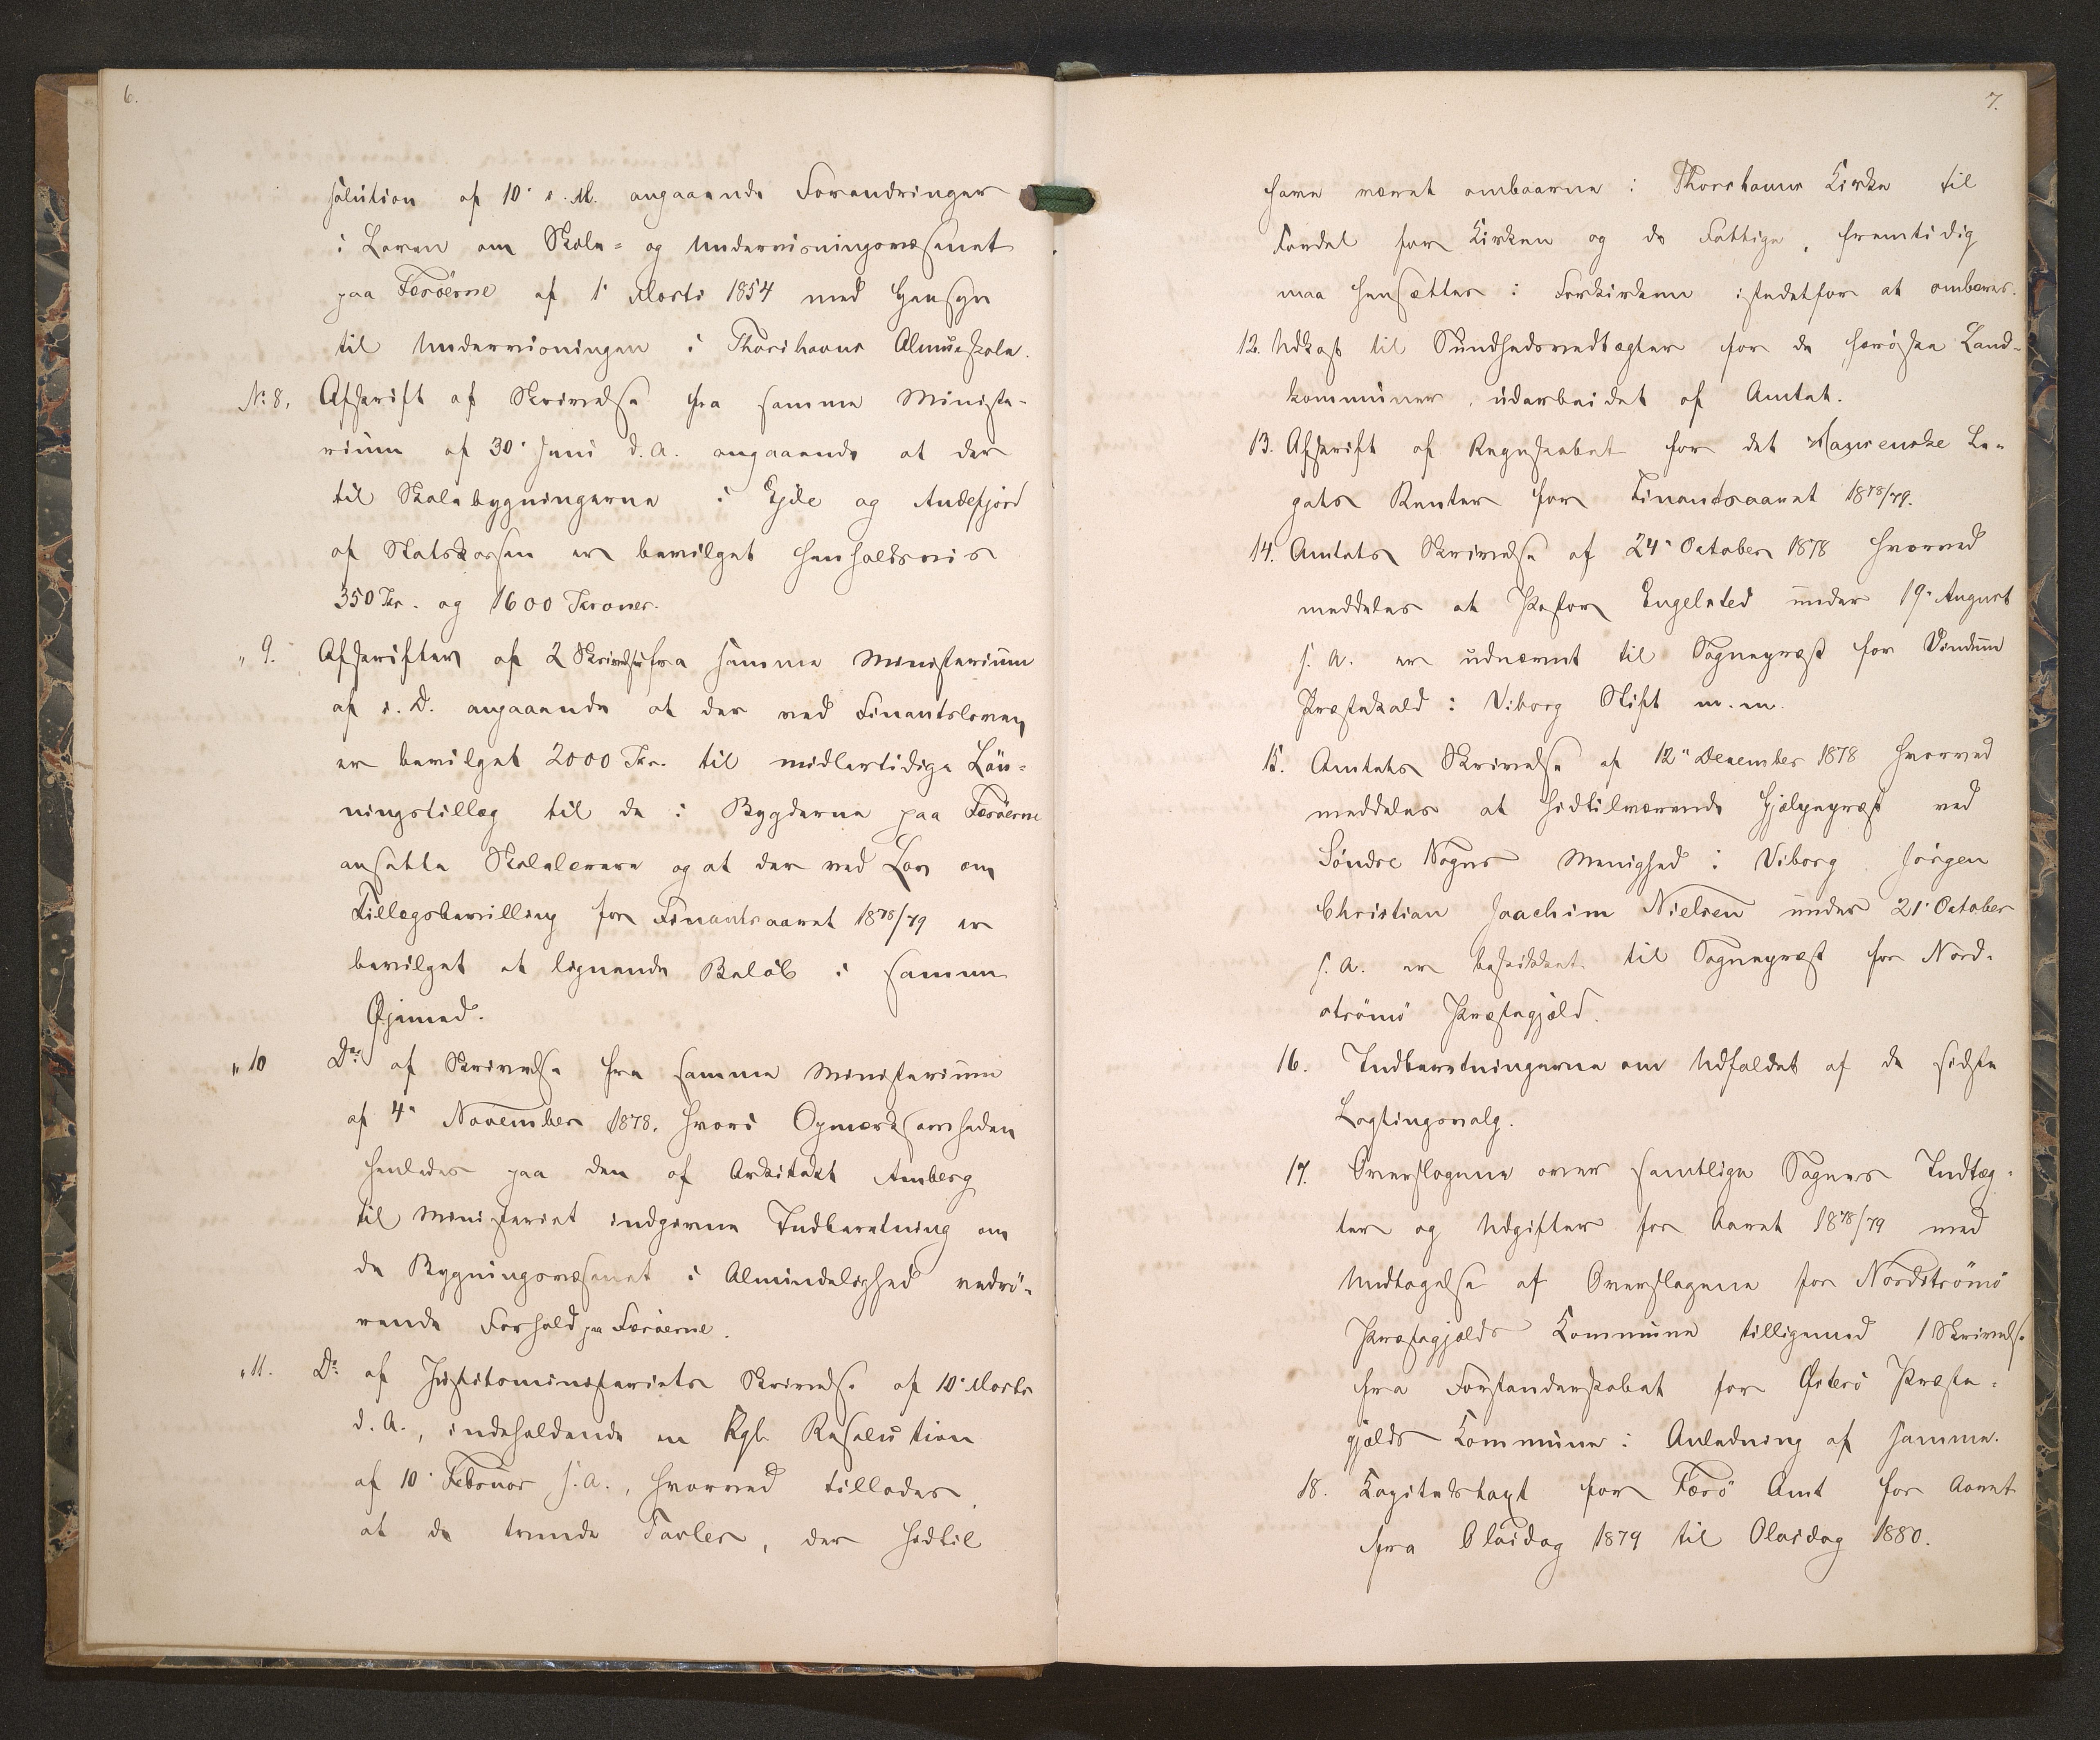 6.
solution af 10' s. M. angaaende Forandringer
i Loven om Skole- og Undervisningsvæsenet
paa Færöerne af 1' Marts 1854 med Hensyn
til Undervisningen i Thorshavns Almueskole.
No 8. Afskrift af Skrivelse fra samme Ministe-
rium af 30' Juni d. A. angaaende at der
til Skolebygningerne i Ejde og Andefjord
af Statskassen er bevilget henholdsvis
350 Kr. og 1600 Kroner.
„ 9. Afskrifter af 2 Skrivelser fra samme Ministerium
af s. D. angaaende at der ved Finantsloven
er bevilget 2000 Kr. til midlertidige Løn-
ningstillæg til de i Bygderne paa Færöerne
ansatte Skolelærere og at der ved Lov om
Tillægsbevilling for Finantsaaret 1878/79 er
bevilget et lignende Beløb i samme
Øjemed.
„ 10 Do af Skrivelse fra samme Ministerium
af 4' November 1878, hvori Opmærksomheden
henledes paa den af Arkitekt Amberg
til Ministeriet indgivne Indberetning om
de Bygningsvæsenet i Almindelighed vedrö-
rende Forhold paa Færöerne.
„ 11. Do af Justitsministeriets Skrivelse af 10' Marts
d. A., indeholdende en Kgl. Resolution
af 10' Februar s. A., hvorved tillades,
at de tvende Tavler, der hidtil
7.
have været ombaarne i Thorshavns Kirke til
Fordel for Kirken og de Fattige, fremtidig
maa hensættes i Forkirkerne istedetfor at ombæres.
12. Udkast til Sundhedsvedtægter for de færöske Land-
kommuner, udarbeidet af Amtet.
13. Afskrift af Regnskabet for det Hansenske Le-
gats Renter for Finantsaaret 1878/79.
14. Amtets Skrivelse af 24' October 1878 hvorved
meddeles at Pastor Engelsted under 19' August
s. A. er udnævnt til Sognepræst for Vindum
Præstekald i Viborg Stift m. m.
15. Amtets Skrivelse af 12' December 1878 hvorved
meddeles at hidtilværende Hjælpepræst ved
Söndre Sogns Menighed i Viborg Jörgen
Christian Joachim Nielsen under 21' October
s. A. er beskikket til Sognepræst for Nord-
strömö Præstegjæld.
16. Indberetningerne om Udfaldet af de sidste
Lagtingsvalg.
17. Overslagene over samtlige Sognes Indtæg-
ter og Udgifter for Aaret 1878/79 med
Undtagelse af Overslagene for Nordströmö
Præstegjælds Kommune tilligemed 1 Skrivelse
fra Forstanderskabet for Österö Præste-
gjælds Kommune i Anledning af samme.
18. Kapitelstaxt for Færö Amt for Aaret
fra Olaidag 1879 til Olaidag 1880.